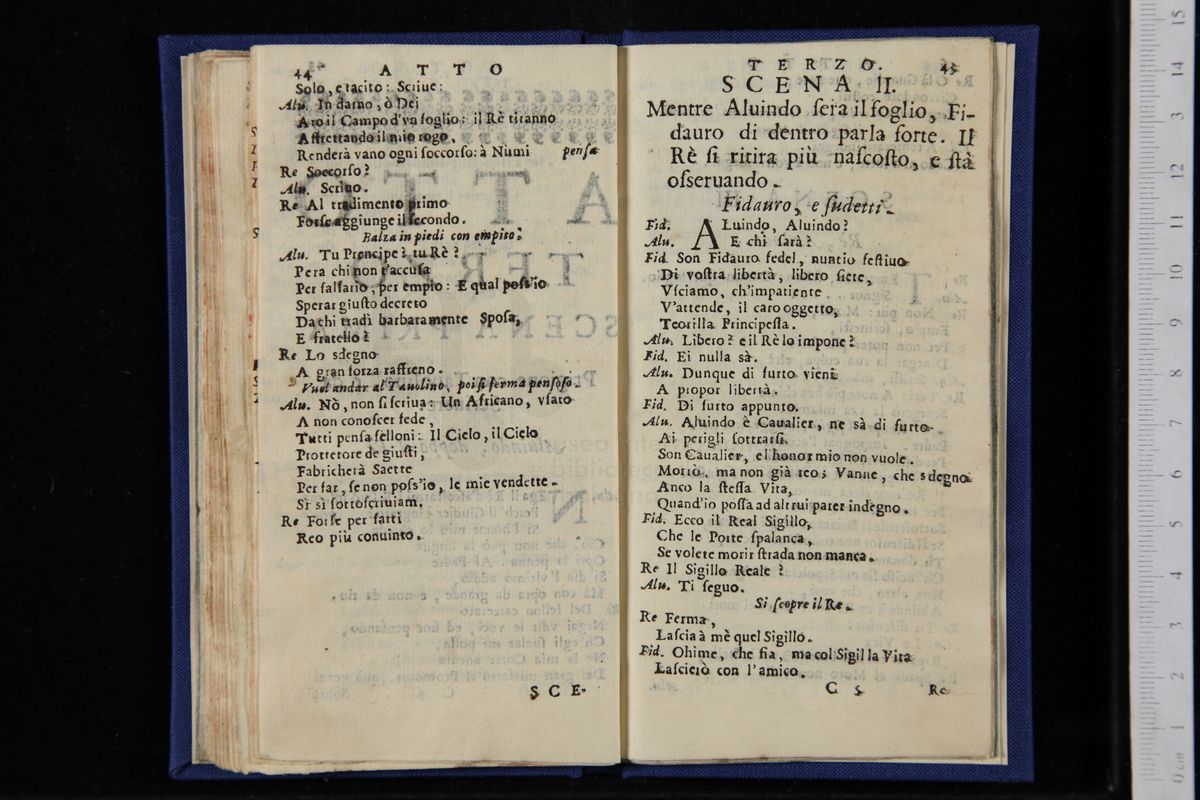 44 ATTO
Solo, e tacito: Scriue:
Alu. In darno, ò Dei
A ro il Campo d'vn foglio: il Rè tiranno
Affrettando il mio rogo,
Renderà vano ogni soccorso: à Numi pensa
Re Soccorso?
Alu. Scriuo.
Re Al tradimento primo
Forse aggiunge il secondo.
Balza in piedi con empito.
Alu. Tu Prencipe? tu Rè?
Pera chi non t'accusa
Per falsario, per empio: E qual poss'io
Sperar giusto decreto
Da chi tradì barbaramente Sposa,
E fratello?
Re Lo sdegno
A gran forza raffreno.
Vuol andar al Tauolino, poi si ferma pensoso.
Alu. Nò, non si scriua: Un Africano, vsato
A non conoscer fede,
Tutti pensa felloni: Il Cielo, il Cielo
Prottetore de giusti,
Fabricherà Saette
Per far, se non poss'io, le mie vendette.
Sì sì sottoscriuiam.
Re Forse per farti
Reo più conuinto.
SCE-
TERZO. 45
SCENA II.
Mentre Aluindo sera il foglio, Fi-
dauro di dentro parla forte. Il
Rè si ritira più nascosto, e stà
osseruando.
Fidauro, e sudetti.
Fid. ALuindo, Aluindo?
Alu. E chi sarà?
Fid. Son Fidauro fedel, nuntio festiuo
Di vostra libertà, libero siete,
Vsciamo, ch'impatiente
V'attende, il caro oggetto,
Teorilla Principessa.
Alu. Libero? e il Rè lo impone?
Fid. Ei nulla sà.
Alu. Dunque di furto vieni
A propor libertà.
Fid. Di furto appunto.
Alu. Aluindo è Caualier, ne sà di furto
Ai perigli sottrarsi.
Son Caualier, e l'honor mio non vuole.
Morirò, ma non già reo; Vanne, che sdegno
Anco la stessa Vita,
Quand'io possa ad altrui parer indegno.
Fid. Ecco il Real Sigillo,
Che le Porte spalanca,
Se volete morir strada non manca.
Re Il Sigillo Reale?
Alu. Ti seguo.
Si scopre il Re.
Re Ferma,
Lascia à mè quel Sigillo.
Fid. Ohime, che fia, ma col Sigil la Vita
Lascierò con l'amico.
C 5 Re